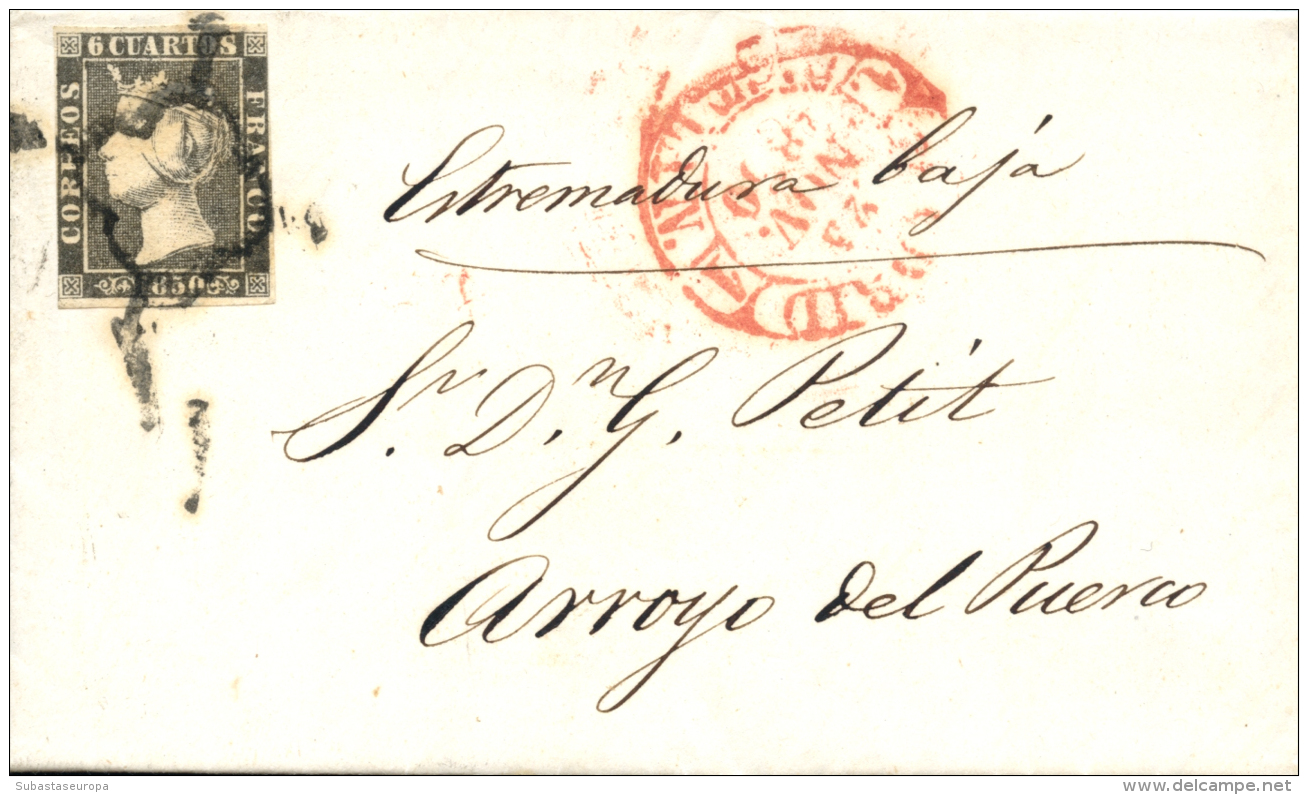 6 CUARTOS
CORREOS
FRANCO
1850
Estremadura baja
23
NOV.
Sr. Dn. G. Petit
Arroyo del Puerco
Subastaseuropa
delcampe.net